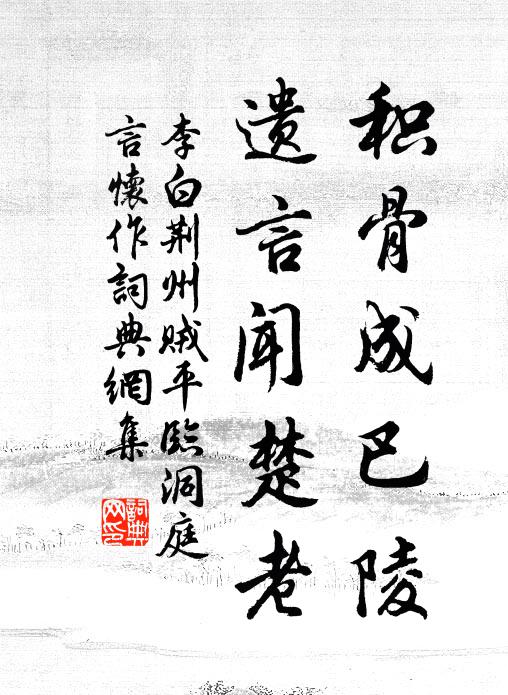 积骨成巴陵
遗言闻楚老
李白荆州贼平临洞庭
言懷作詞典網集
詞典
网印